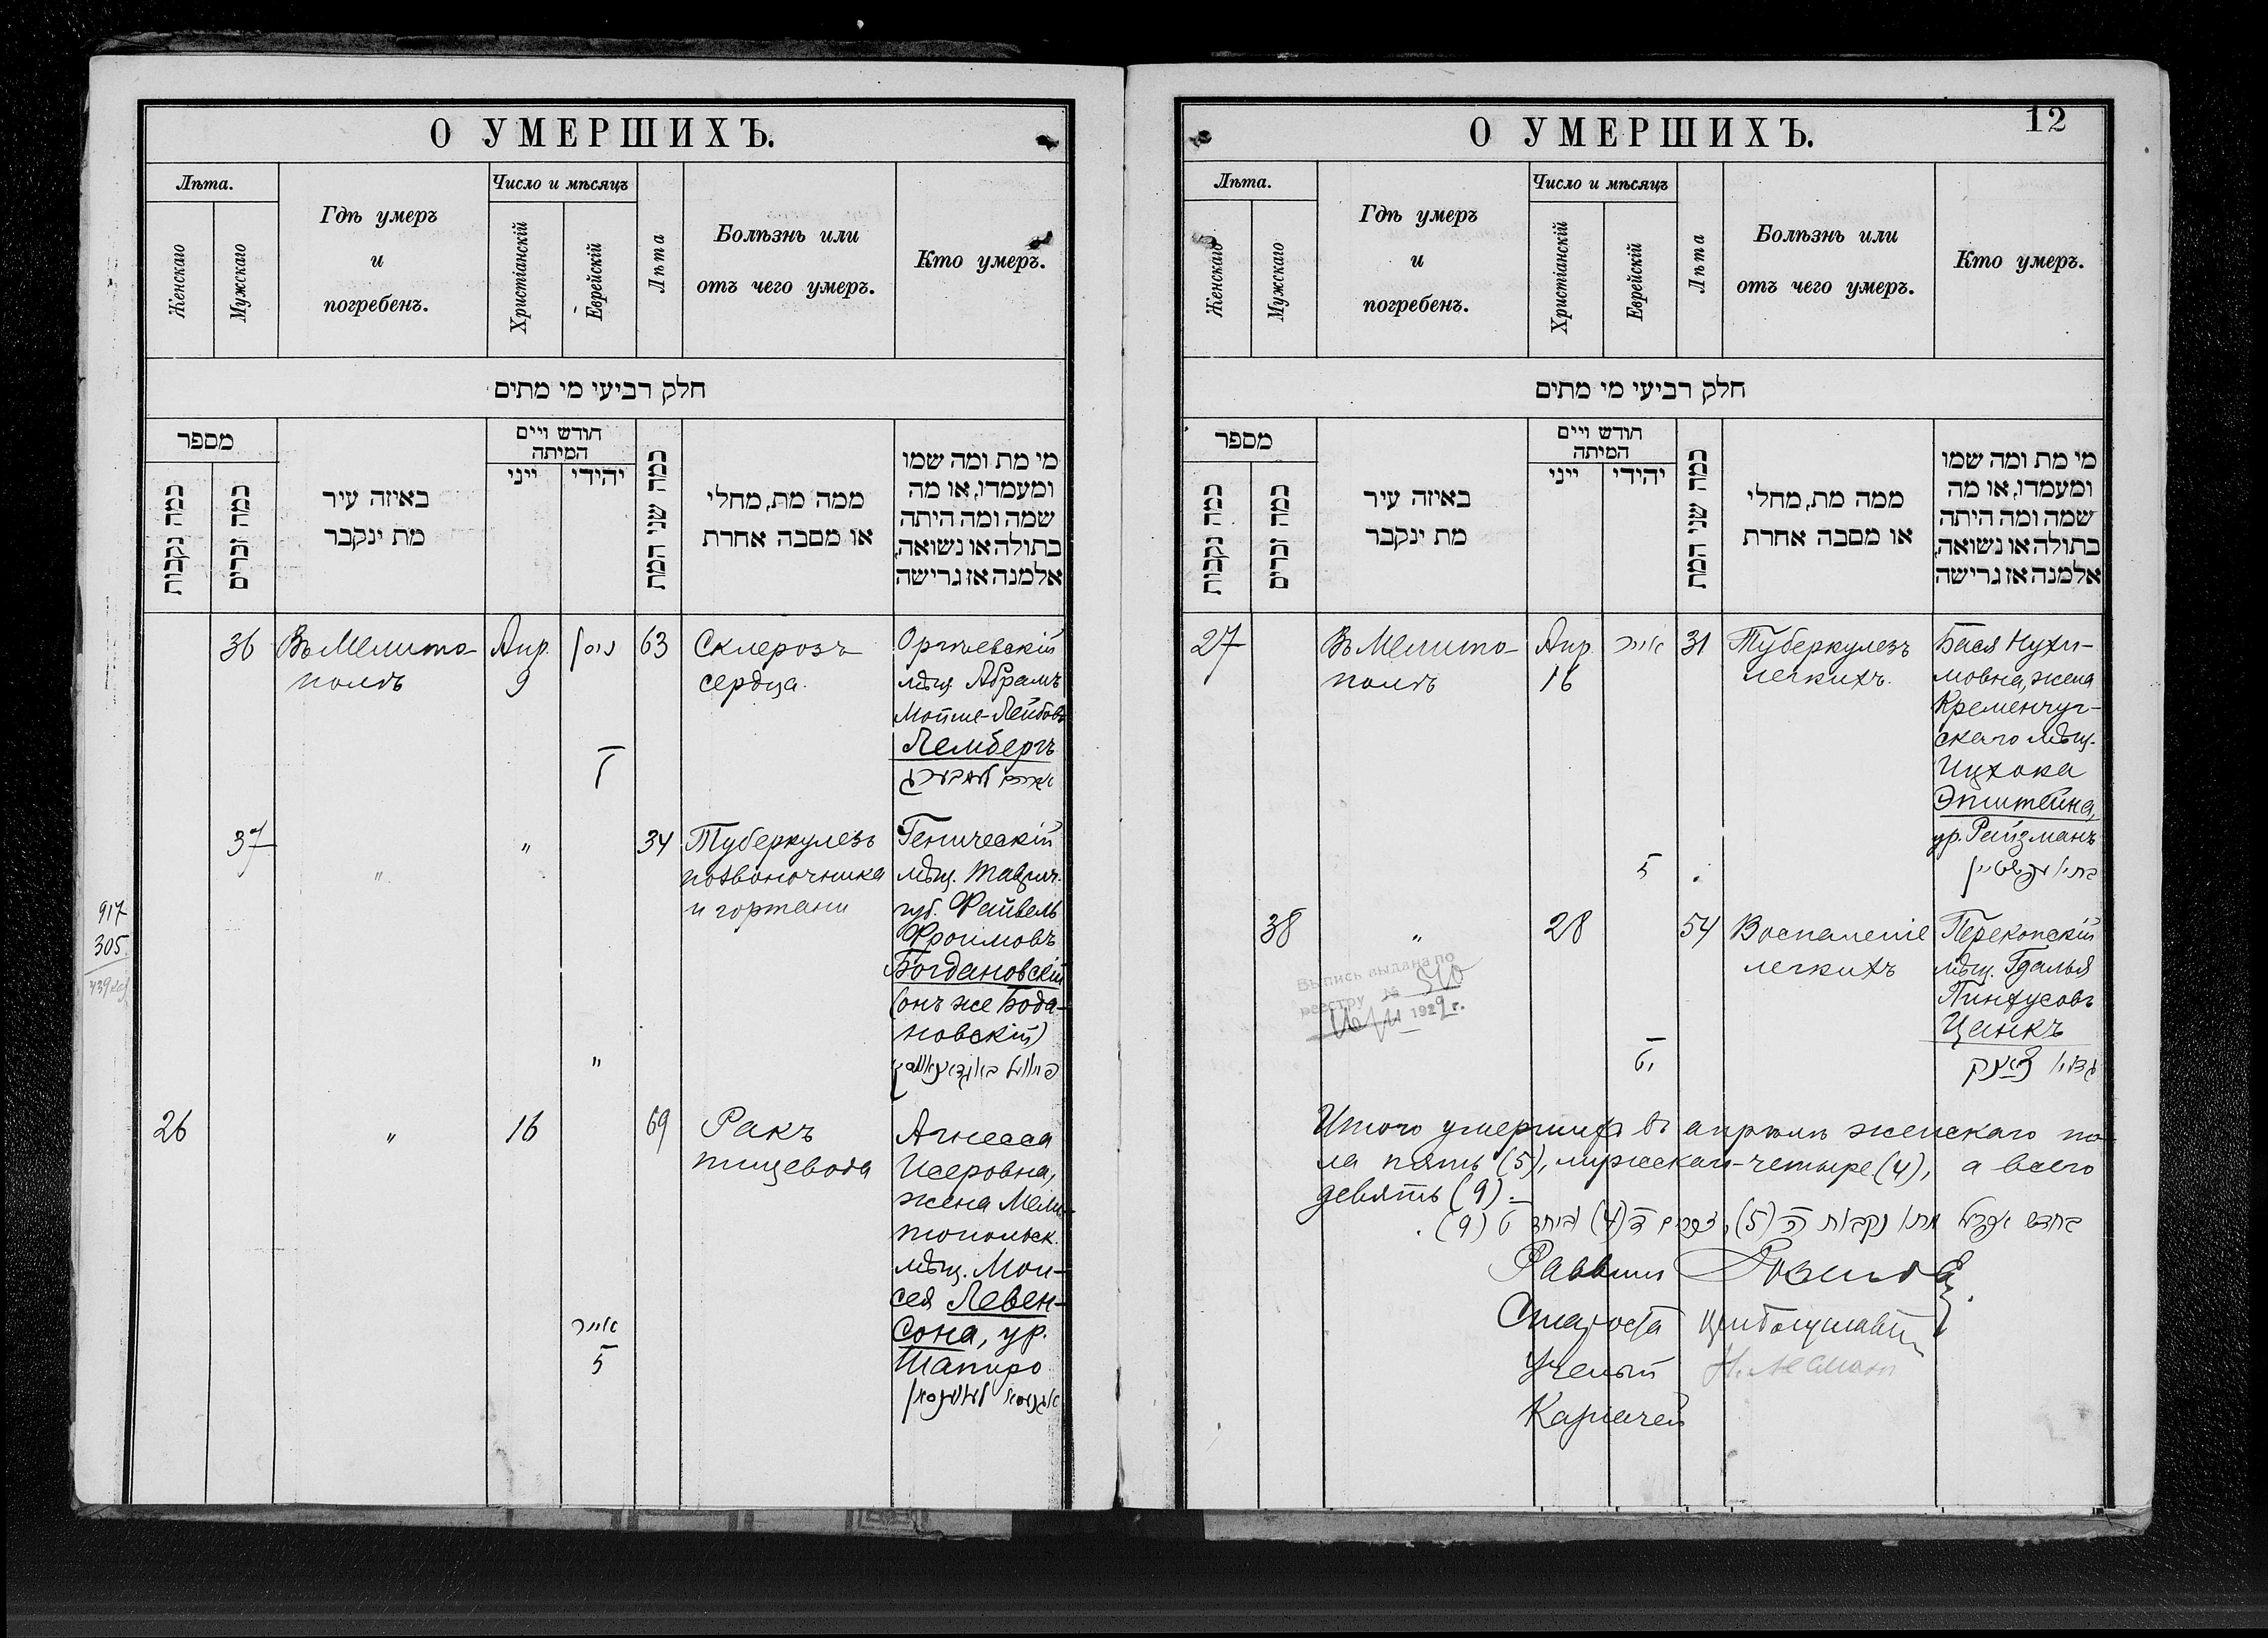 О УМЕРШИХЪ.
Лѣта.
Женскаго
Мужскаго
Гдѣ умеръ
и
погребенъ.
Число и мѣсяцъ
Христіанскій
Еврейскій
Лѣта
Болѣзнь или
отъ чего умеръ.
Кто умеръ.
חלק רביעי מי מתים
מספר
כמה נקבות
כמה זכרים
באיזה עיר
מת ינקבר
חודש ויים
המיתה
ייני
יהידי
כמה שני המת
ממה מת, מחלי
או מסבה אחרת
מי מת ומה שמו
ומעמדו, או מה
שמה ומה היתה
בתולה או נשואה,
אלמנה אז גרישה
36
Въ Мелито-
полѣ
Апр.
9
ניסן
63
Склерозъ
сердца.
Орѣховскій
мѣщ. Абрамъ
Мойше-Лейбовъ
Лембергъ
37
"
"
34
Туберкулезъ
позвоночника
и гортани
Геническій
мѣщ. Таврич.
губ. Файвель
Фроимовъ
Богдановскій
(онъ же Бода-
новскій)
"
917
305
26
"
16
אייר
5
69
Ракъ
пищевода
Агнесса
Исеровна,
жена Мели-
топольск.
мѣщ. Мои-
сея Левен-
сона, ур.
Шапиро
12
О УМЕРШИХЪ.
Лѣта.
Женскаго
Мужскаго
Гдѣ умеръ
и
погребенъ.
Число и мѣсяцъ
Христіанскій
Еврейскій
Лѣта
Болѣзнь или
отъ чего умеръ.
Кто умеръ.
חלק רביעי מי מתים
מספר
כמה נקבות
כמה זכרים
באיזה עיר
מת ינקבר
חודש ויים
המיתה
ייני
יהידי
כמה שני המת
ממה מת, מחלי
או מסבה אחרת
מי מת ומה שמו
ומעמדו, או מה
שמה ומה היתה
בתולה או נשואה,
אלמנה אז גרישה
27
Въ Мелито-
полѣ
Апр.
16
אייר
5
31
Туберкулезъ
легкихъ.
Бася Нухи-
мовна, жена
Кременчуг-
скаго мѣщ.
Ицхока
Эпштейна,
ур. Рейзманъ
38
"
28
54
Воспаленіе
легкихъ
Перекопскій
мѣщ. Гдалья
Пинхусовъ
Цанкъ
Выпись выдана по
реестру №
1929 г.
Итого умершихъ въ апрѣлѣ женскаго по-
ла пять (5), мужскаго-четыре (4), а всего
девять (9).
Раввинъ
Староста
Ученый
Казначей